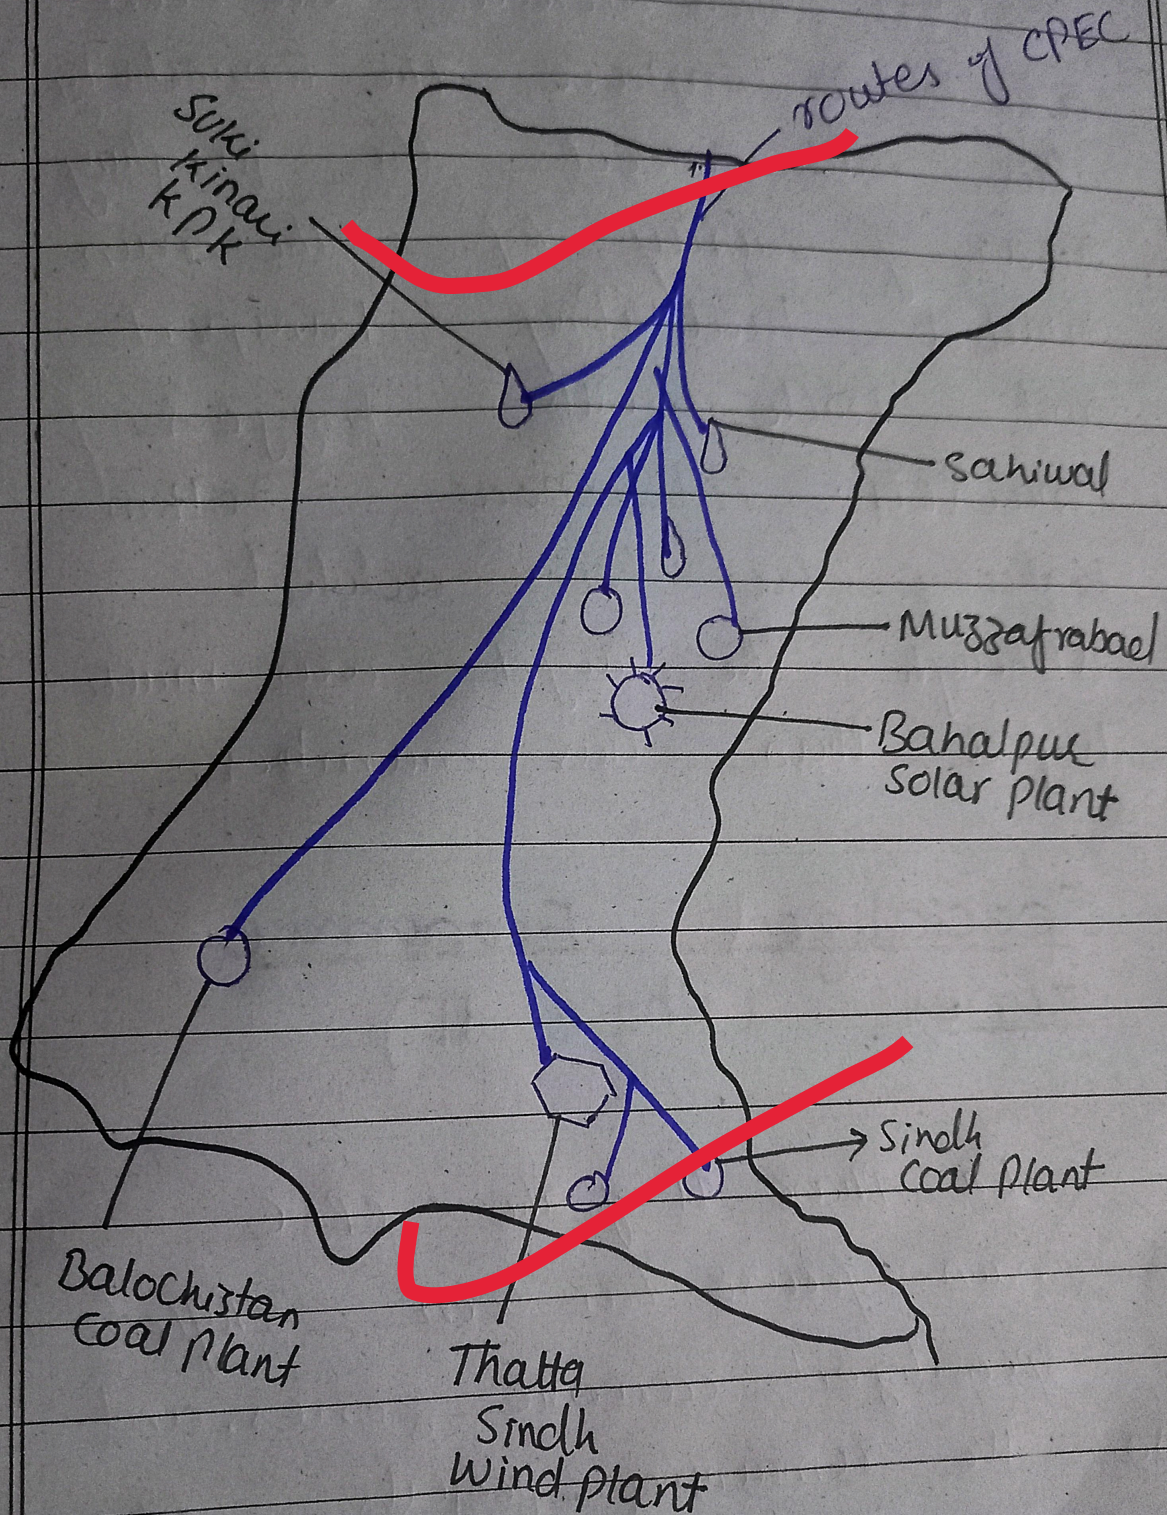 routes of CPEC
Suki
Kinari
KPK
Sahiwal
Muzzafrabad
Bahalpur
Solar Plant
Sindh
Coal Plant
Balochistan
Coal Plant
Thatta
Sindh
Wind Plant